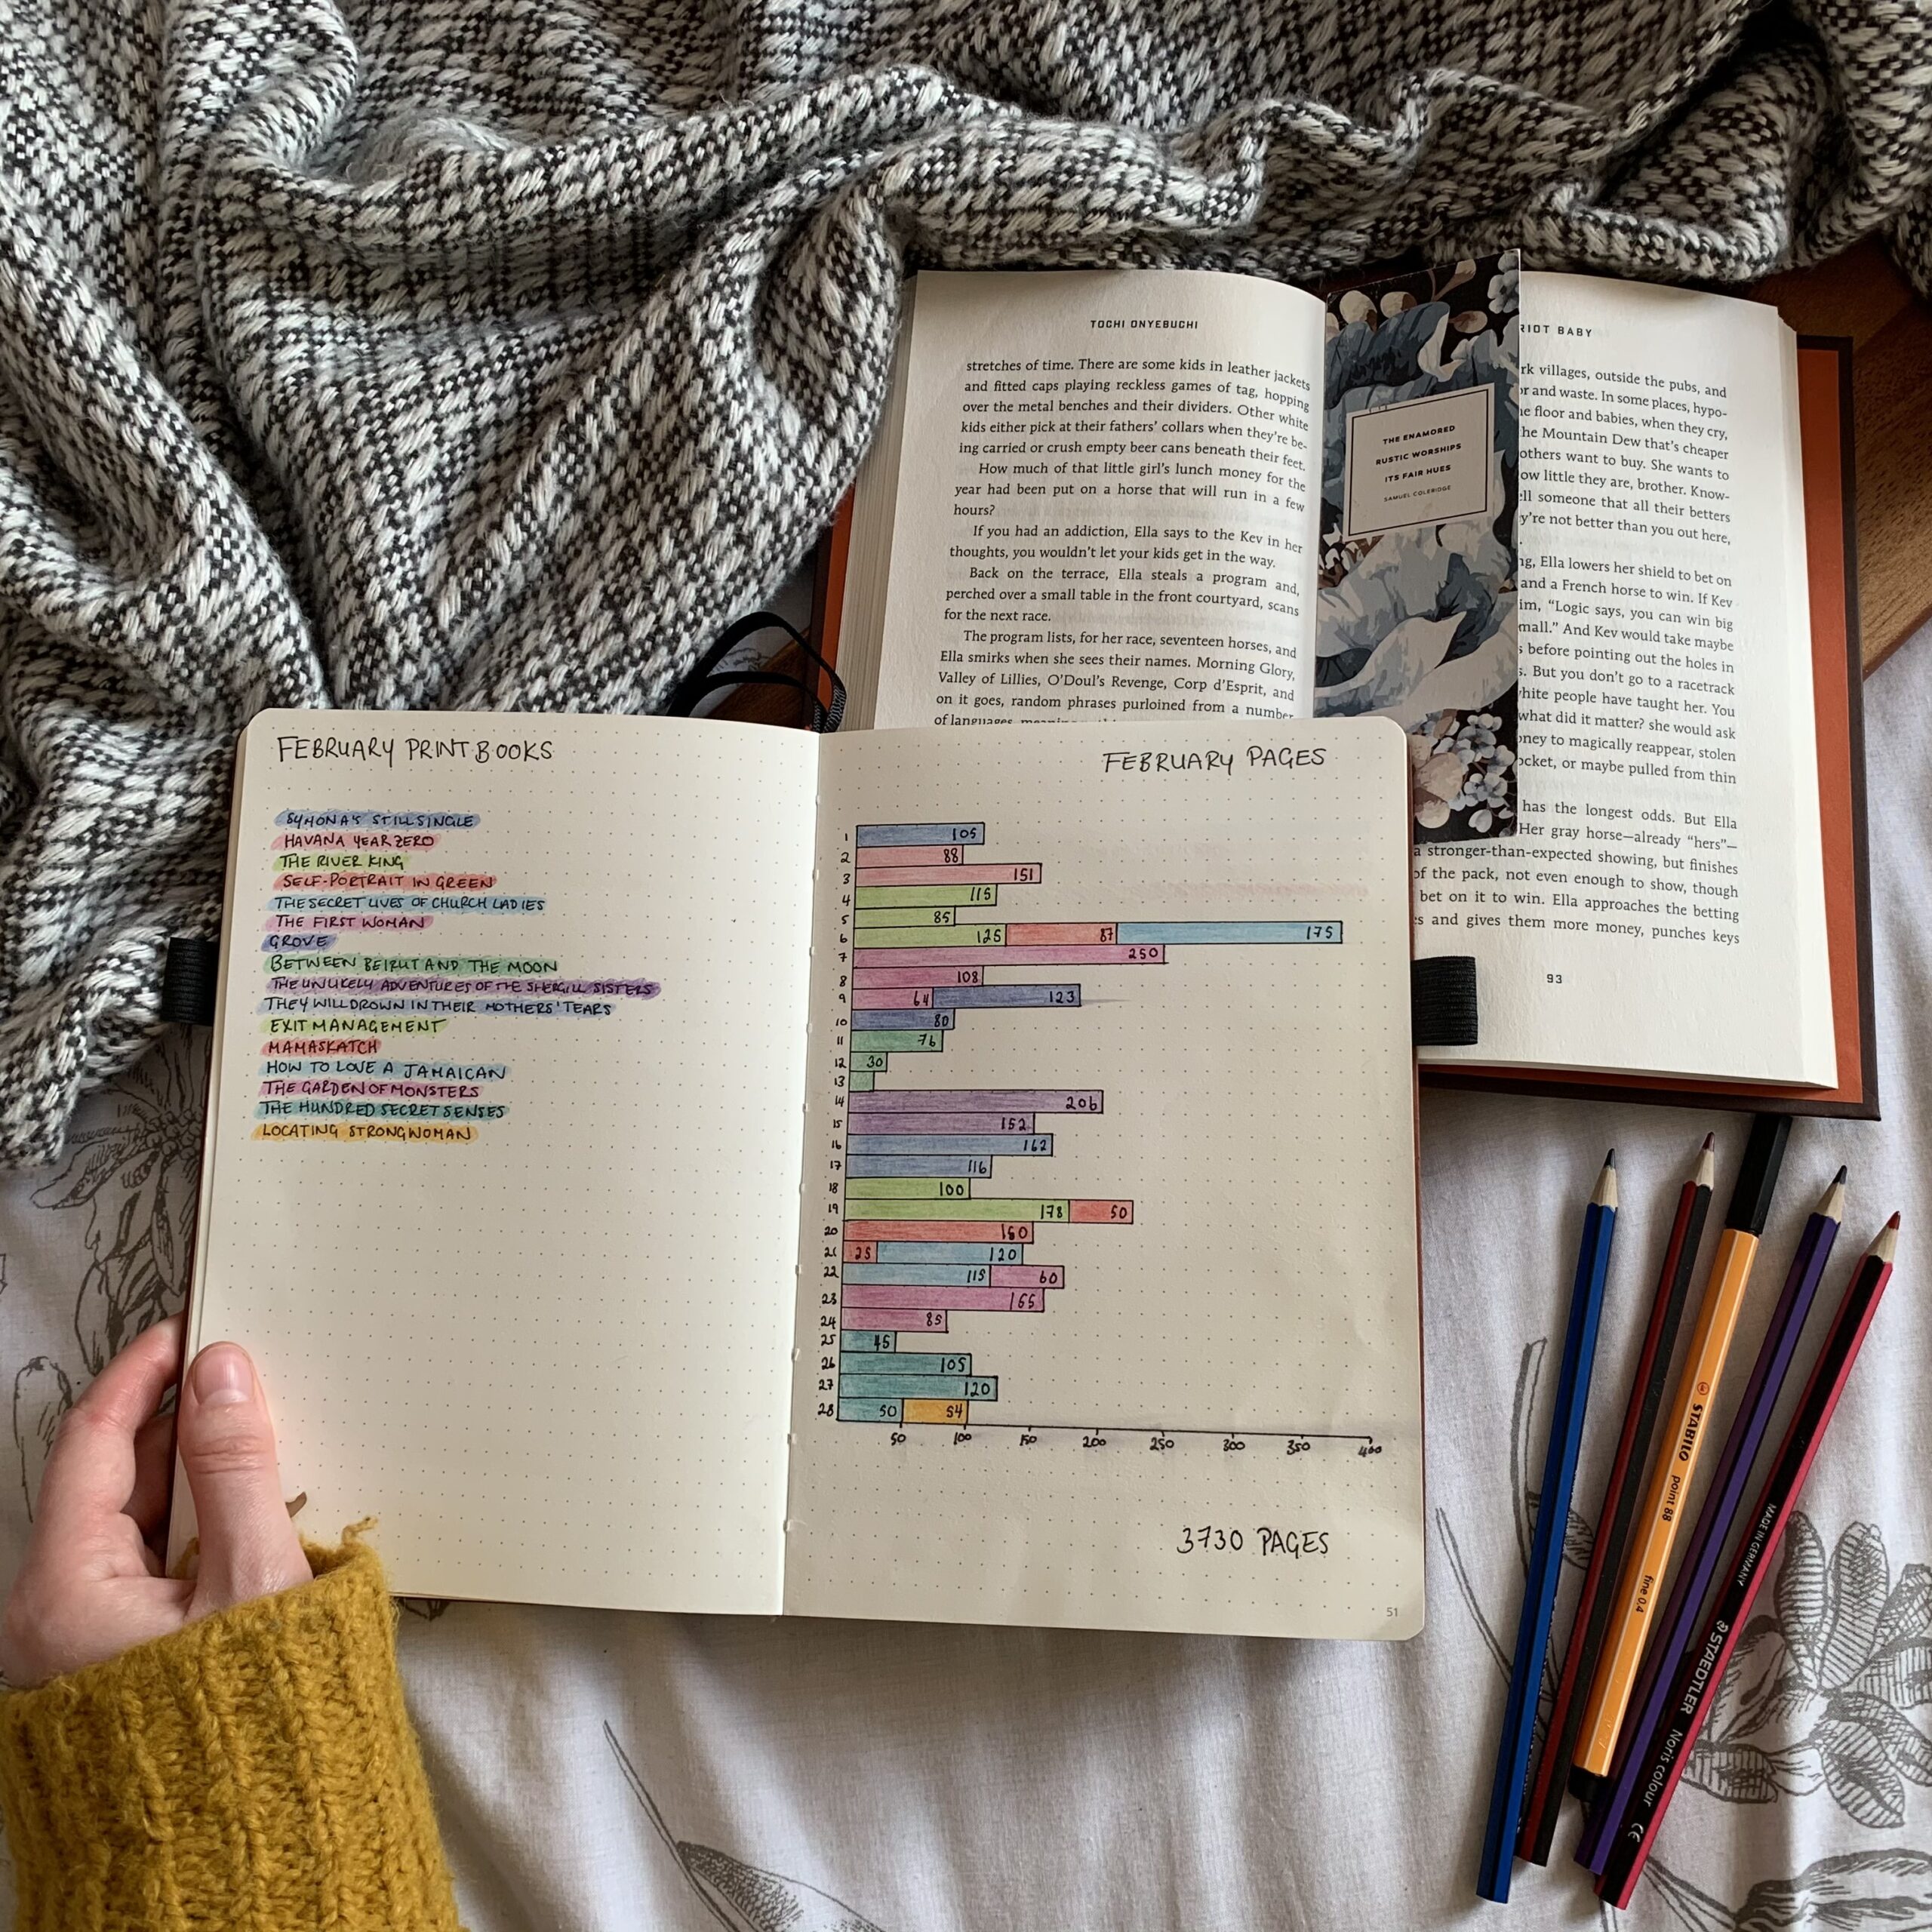 TOCHI ONYEBUCHI
stretches of time. There are some kids in leather jackets
and fitted caps playing reckless games of tag, hopping
over the metal benches and their dividers. Other white
kids either pick at their fathers' collars when they're be-
ing carried or crush empty beer cans beneath their feet.
How much of that little girl's lunch money for the
year had been put on a horse that will run in a few
hours?
If you had an addiction, Ella says to the Kev in her
thoughts, you wouldn't let your kids get in the way.
Back on the terrace, Ella steals a program and,
perched over a small table in the front courtyard, scans
for the next race.
The program lists, for her race, seventeen horses, and
Ella smirks when she sees their names. Morning Glory,
Valley of Lillies, O'Doul's Revenge, Corp d'Esprit, and
on it goes, random phrases purloined from a number
of languages
THE ENAMORED
RUSTIC WORSHIPS
ITS FAIR HUES
SAMUEL COLERIDGE
RIOT BABY
villages, outside the pubs, and
and waste. In some places, hypo-
floor and babies, when they cry,
the Mountain Dew that's cheaper
others want to buy. She wants to
how little they are, brother. Know-
someone that all their betters
not better than you out here,
Ella lowers her shield to bet on
and a French horse to win. If Kev
"Logic says, you can win big
And Kev would take maybe
before pointing out the holes in
But you don't go to a racetrack
white people have taught her. You
what did it matter? she would ask
money to magically reappear, stolen
or maybe pulled from thin
has the longest odds. But Ella
Her gray horse—already "hers"—
a stronger-than-expected showing, but finishes
of the pack, not even enough to show, though
bet on it to win. Ella approaches the betting
and gives them more money, punches keys
93
FEBRUARY PRINT BOOKS
SYMONA'S STILL SINGLE
HAVANA YEAR ZERO
THE RIVER KING
SELF-PORTRAIT IN GREEN
THE SECRET LIVES OF CHURCH LADIES
THE FIRST WOMAN
GROVE
BETWEEN BEIRUT AND THE MOON
THE UNLIKELY ADVENTURES OF THE SHERGILL SISTERS
THEY WILL DROWN IN THEIR MOTHERS' TEARS
EXIT MANAGEMENT
MAMASKATCH
HOW TO LOVE A JAMAICAN
THE GARDEN OF MONSTERS
THE HUNDRED SECRET SENSES
LOCATING STRONGWOMAN
FEBRUARY PAGES
1 105
2 88
3 151
4 115
5 85
6 125 87 175
7 250
8 108
9 64 123
10 80
11 76
12 30
13
14 206
15 152
16 162
17 116
18 100
19 178 50
20 150
21 25 120
22 115 60
23 165
24 85
25 45
26 105
27 120
28 50 54
50 100 150 200 250 300 350 400
3730 PAGES
51
STABILO point 88 fine 0.4
MADE IN GERMANY STAEDTLER Noris colour CE